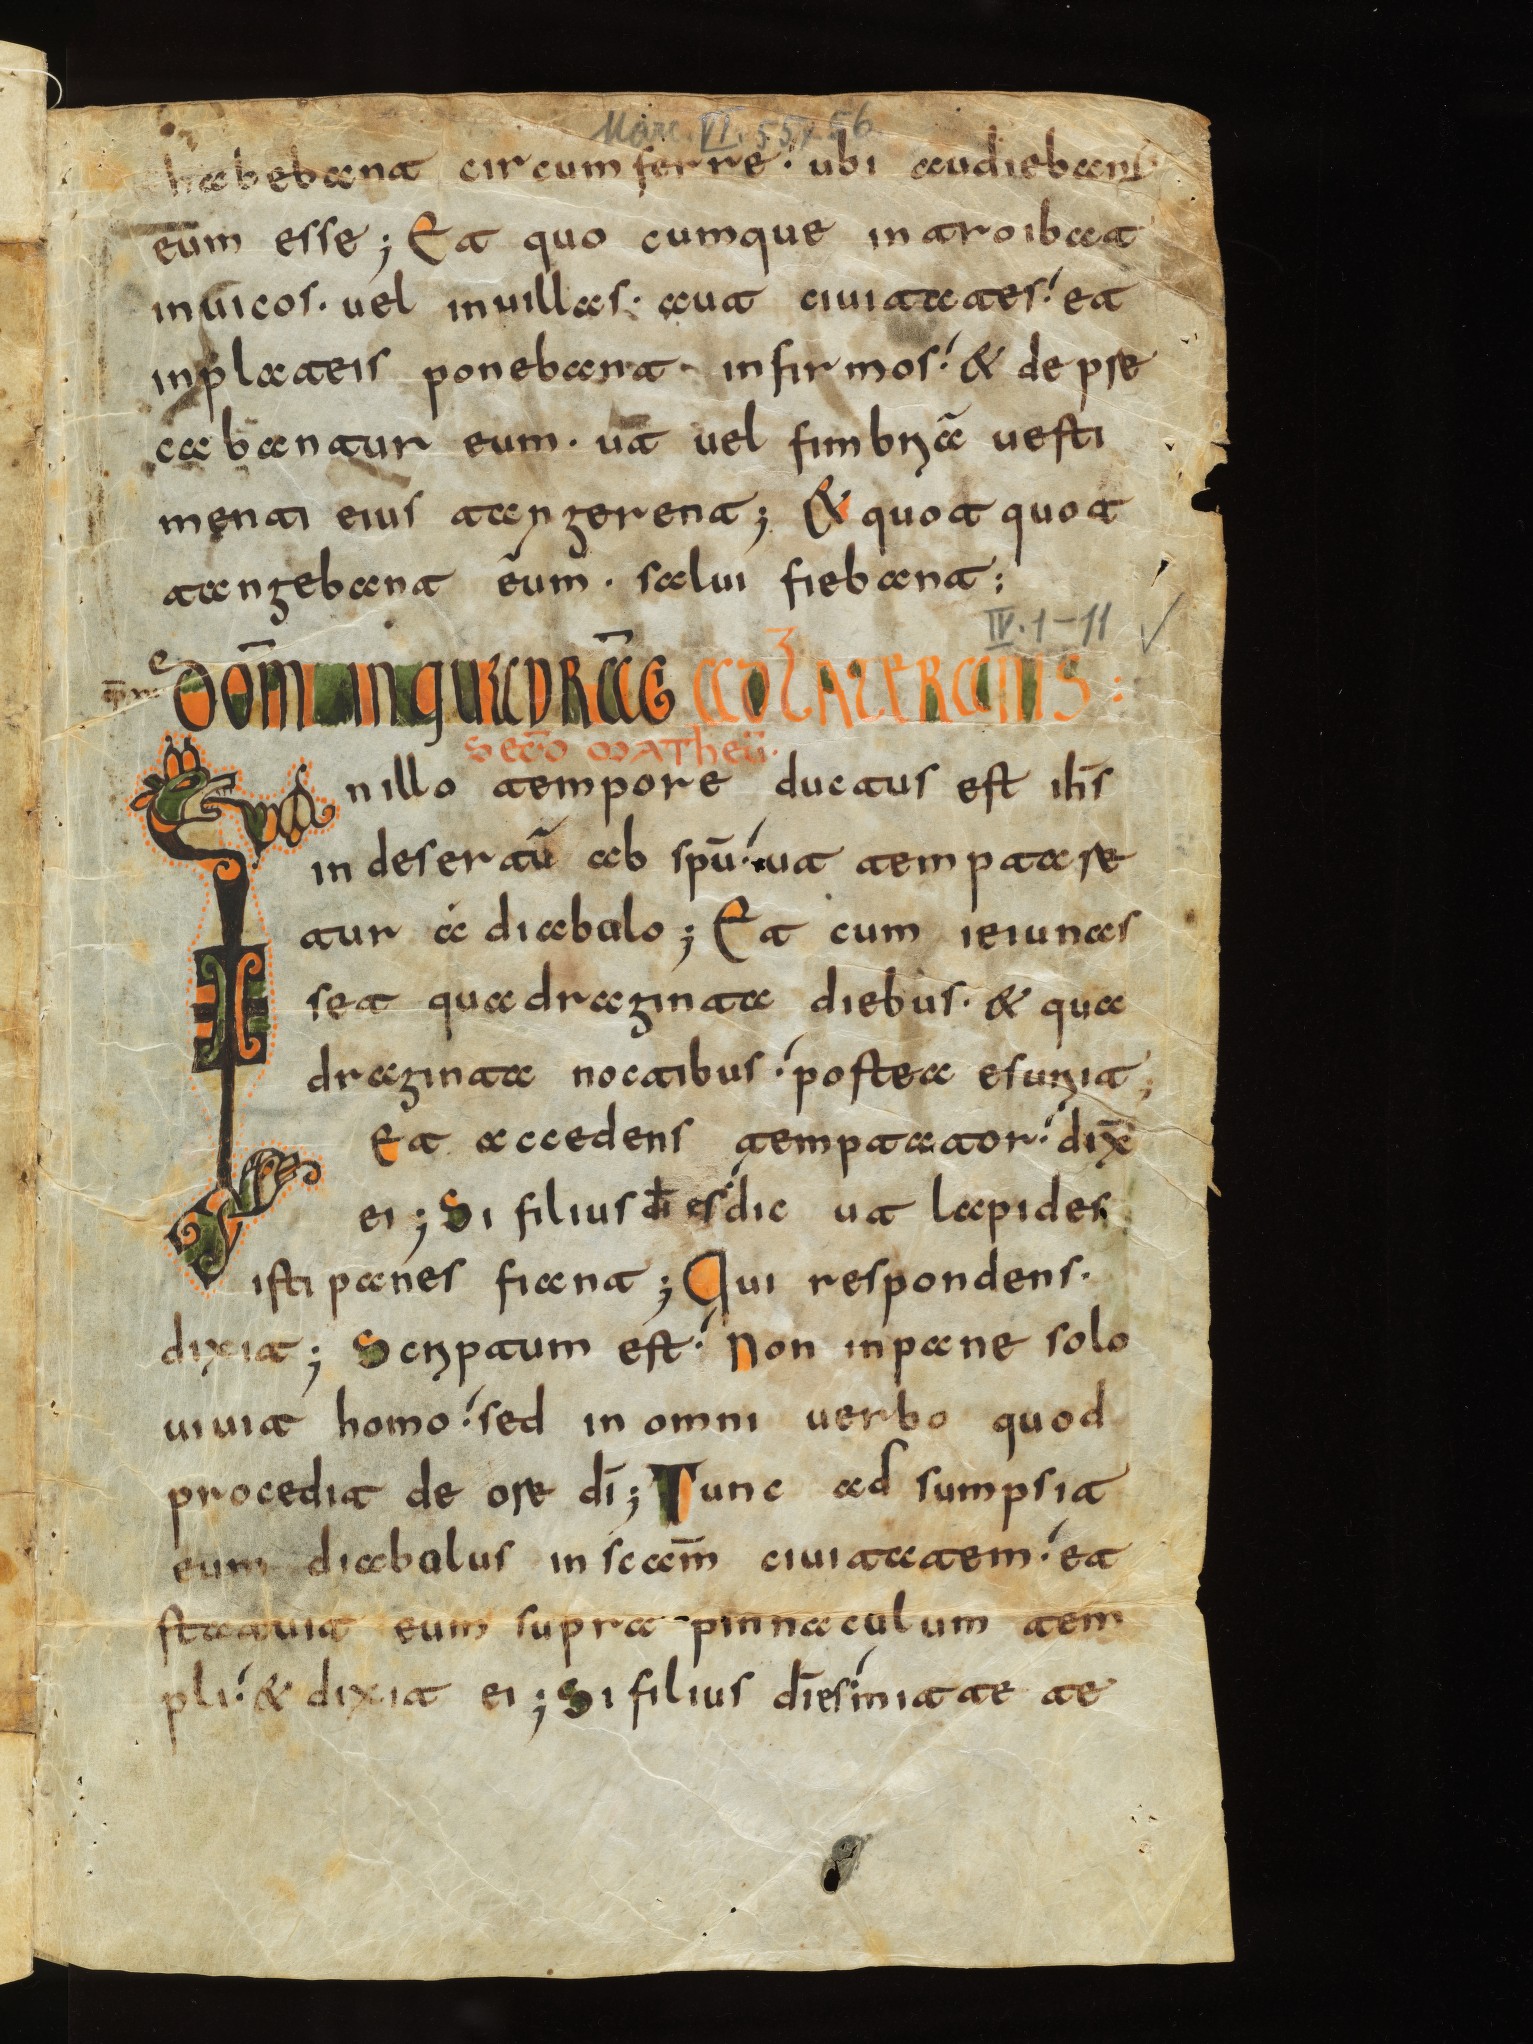 Marc. VI. 55, 56
habebant circumferre. ubi audiebant
eum esse; Et quo cumque introibat
in uicos. uel in uillas. aut ciuitates. et
in plateis ponebant infirmos. & depre
cabantur eum. ut uel fimbriā uesti
menti eius tangerent; & quotquot
tangebant eum. salui fiebant;
IV. 1-11
DOM̄ IN QUADRAḠ AD LATERANIS:
SECD̄O MATHEŪ.
In illo tempore ductus est ih̄s
in desertū ab spū. ut temptare
tur a diabolo; Et cum ieiunas
set quadraginta diebus. & qua
draginta noctibus. postea esuriit;
Et accedens temptator. dix̄
ei; Si filius dī es dic ut lapides
isti panes fiant; Qui respondens.
dixit; Scriptum est. Non in pane solo
uiuit homo. sed in omni uerbo quod
procedit de ore dī; Tunc adsumpsit
eum diabolus in sc̄am ciuitatem. et
statuit eum supra pinnaculum tem
pli. & dixit ei; Si filius dī es mitte te